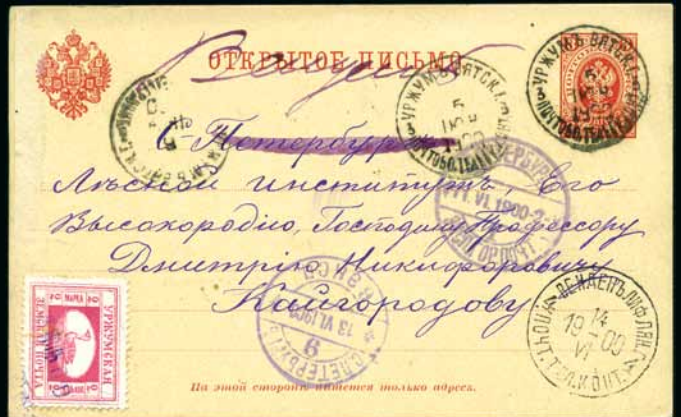 ОТКРЫТОЕ ПИСЬМО.
Венденъ
УРЖУМЪ ВЯТСК.Г.
5
1900
ПОЧТОВО.ТЕЛ.
УРЖУМЪ ВЯТСК.Г.
5
1900
ПОЧТОВО.ТЕЛ.
С-Петербургъ
Лѣсной институтъ, Его
Высокородію, Господину Профессору
Дмитрію Никифоровичу
Кайгородову
11.VI.1900
ГОР.ПОЧТ.
С.ПЕТЕРБУРГ
13 VI 1900
9
ВЕНДЕНЪ ЛИФЛЯНД.Г.
14
19 00
VI
ПОЧТ. ТЕЛ.КОНТ.
УРЖУМСКАЯ
ЗЕМСКАЯ ПОЧТА
2
2
На этой сторонѣ пишется только адресъ.